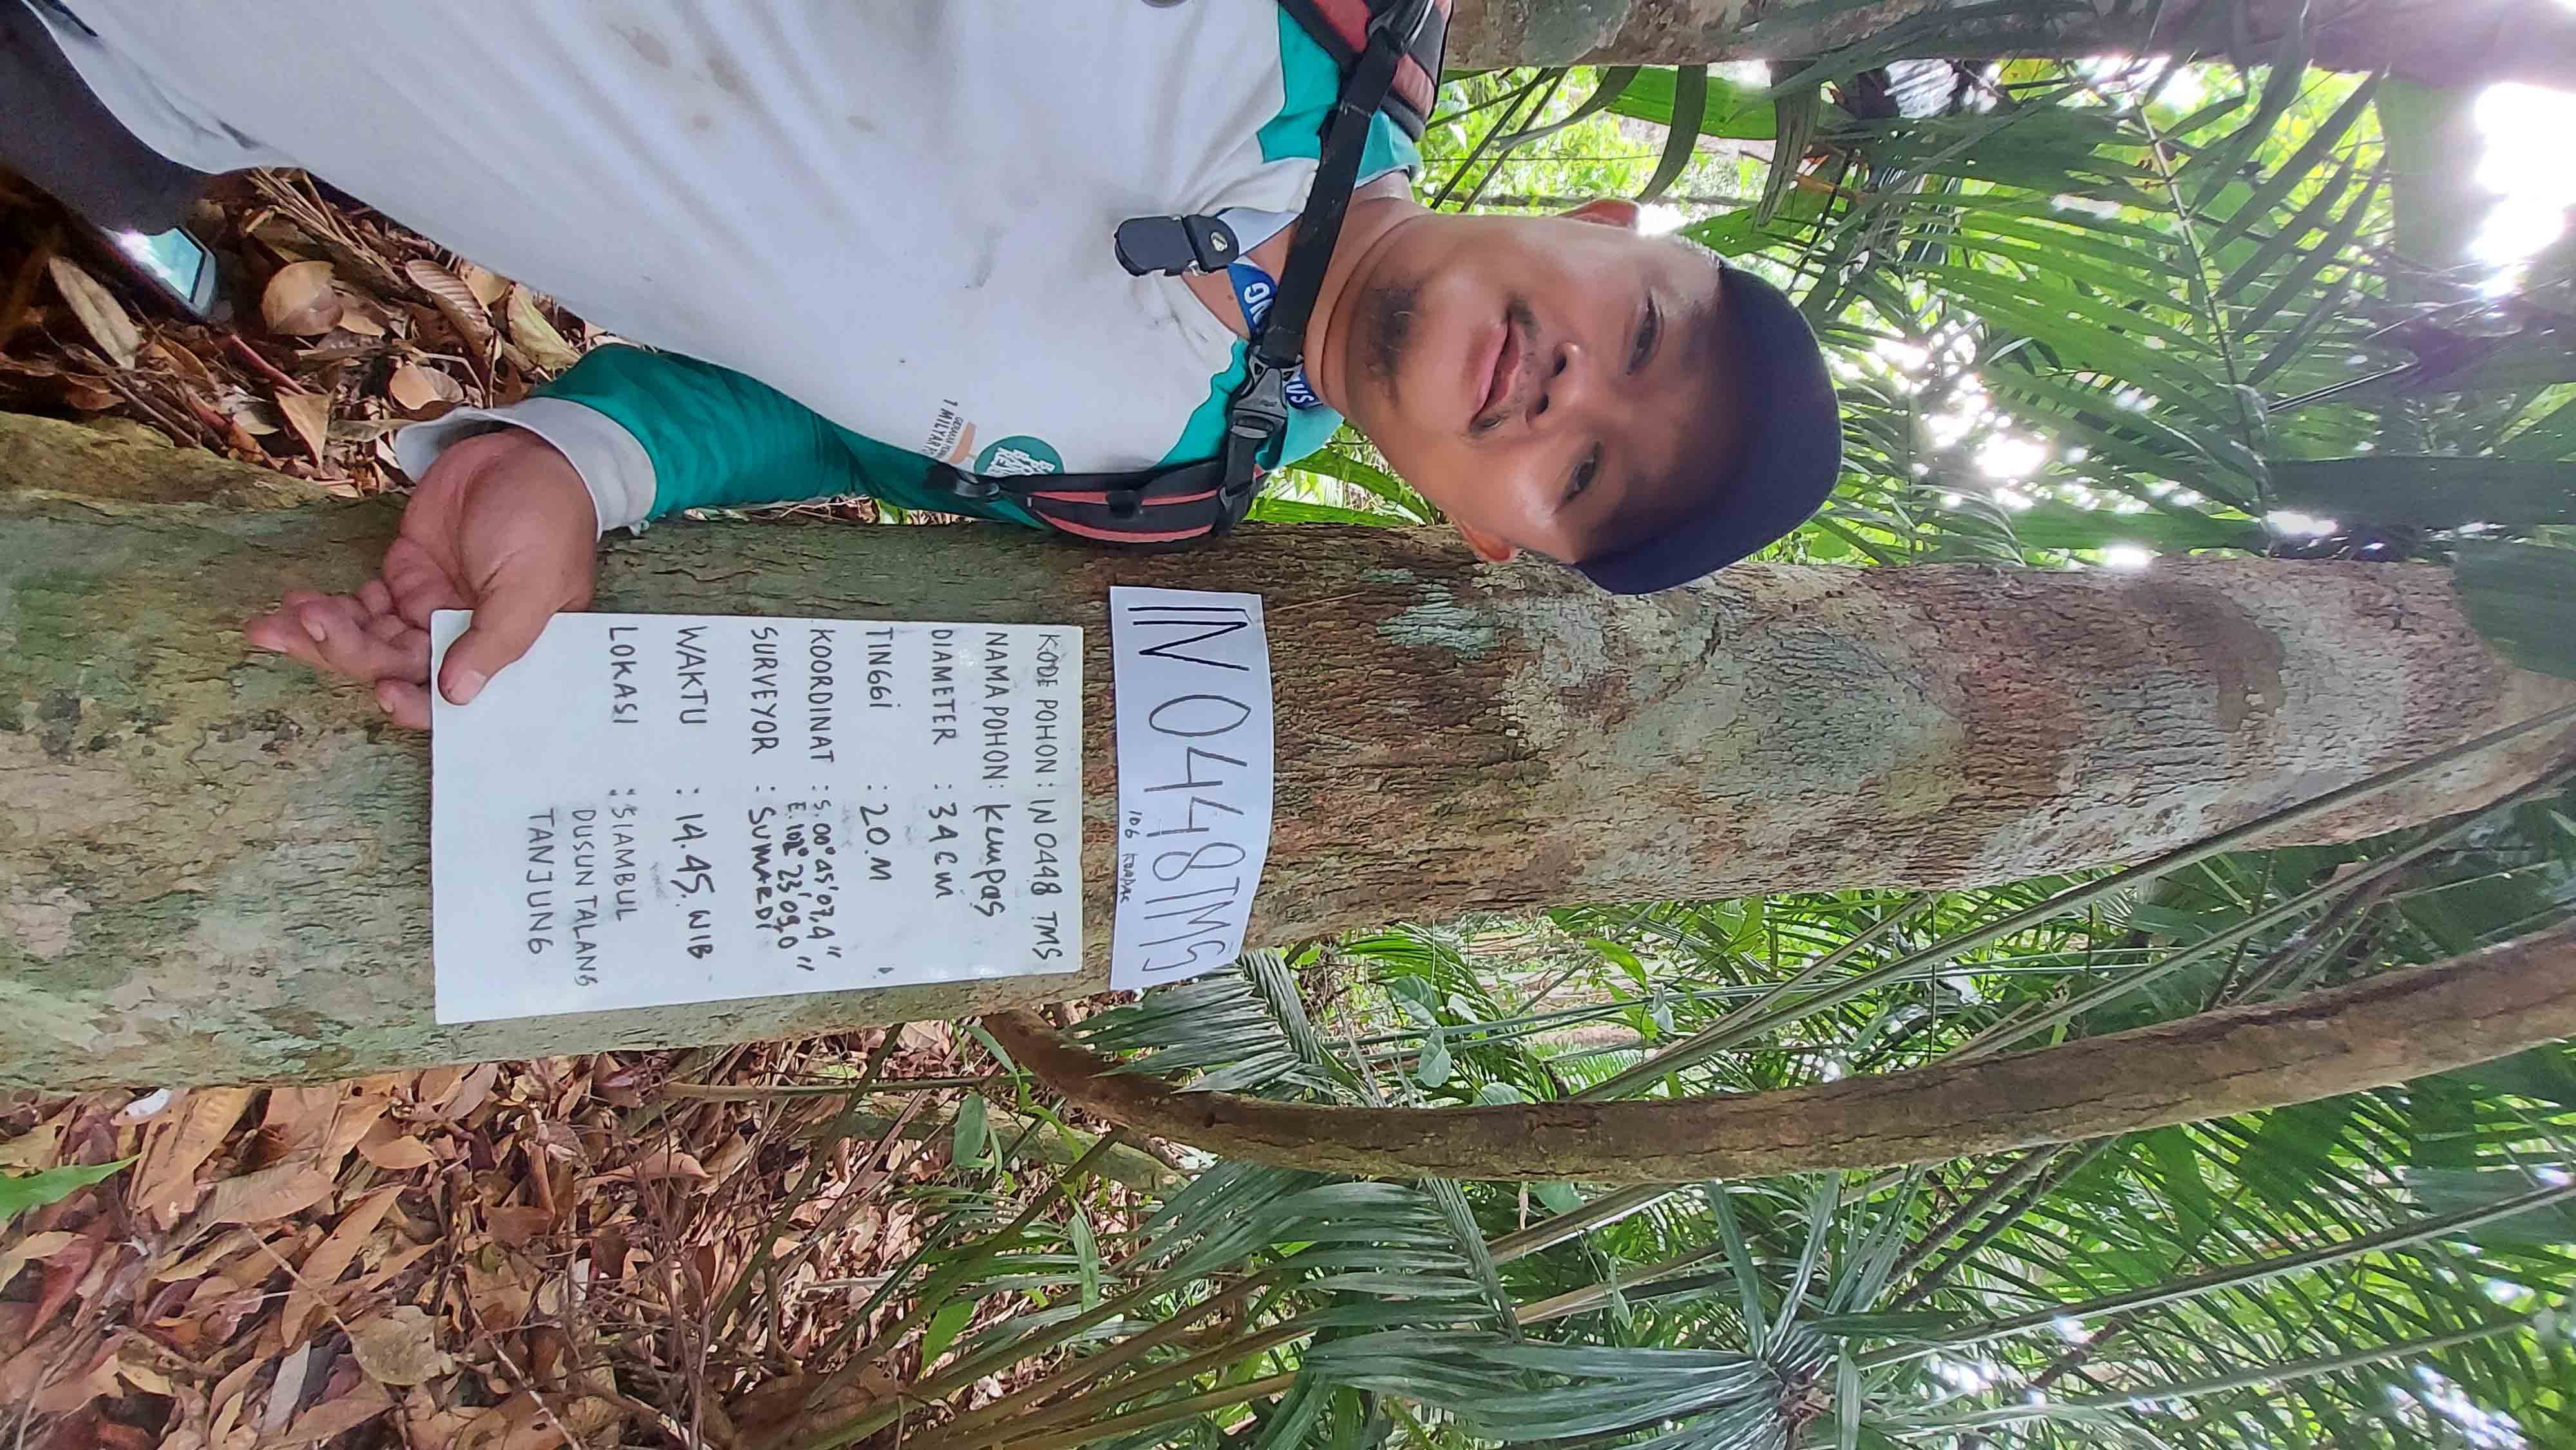 IN 0448 TMS
106 KOMPAS
KODE POHON : IN 0448 TMS
NAMA POHON : Kempas
DIAMETER : 34 cm
TINGGI : 20.M
KOORDINAT : S. 00° 45' 07,4"
E. 102° 23' 09,0"
SURVEYOR : SUMARDI
WAKTU : 14.45. WIB
LOKASI : SIAMBUL
DUSUN TALANG
TANJUNG
1 MILYAR